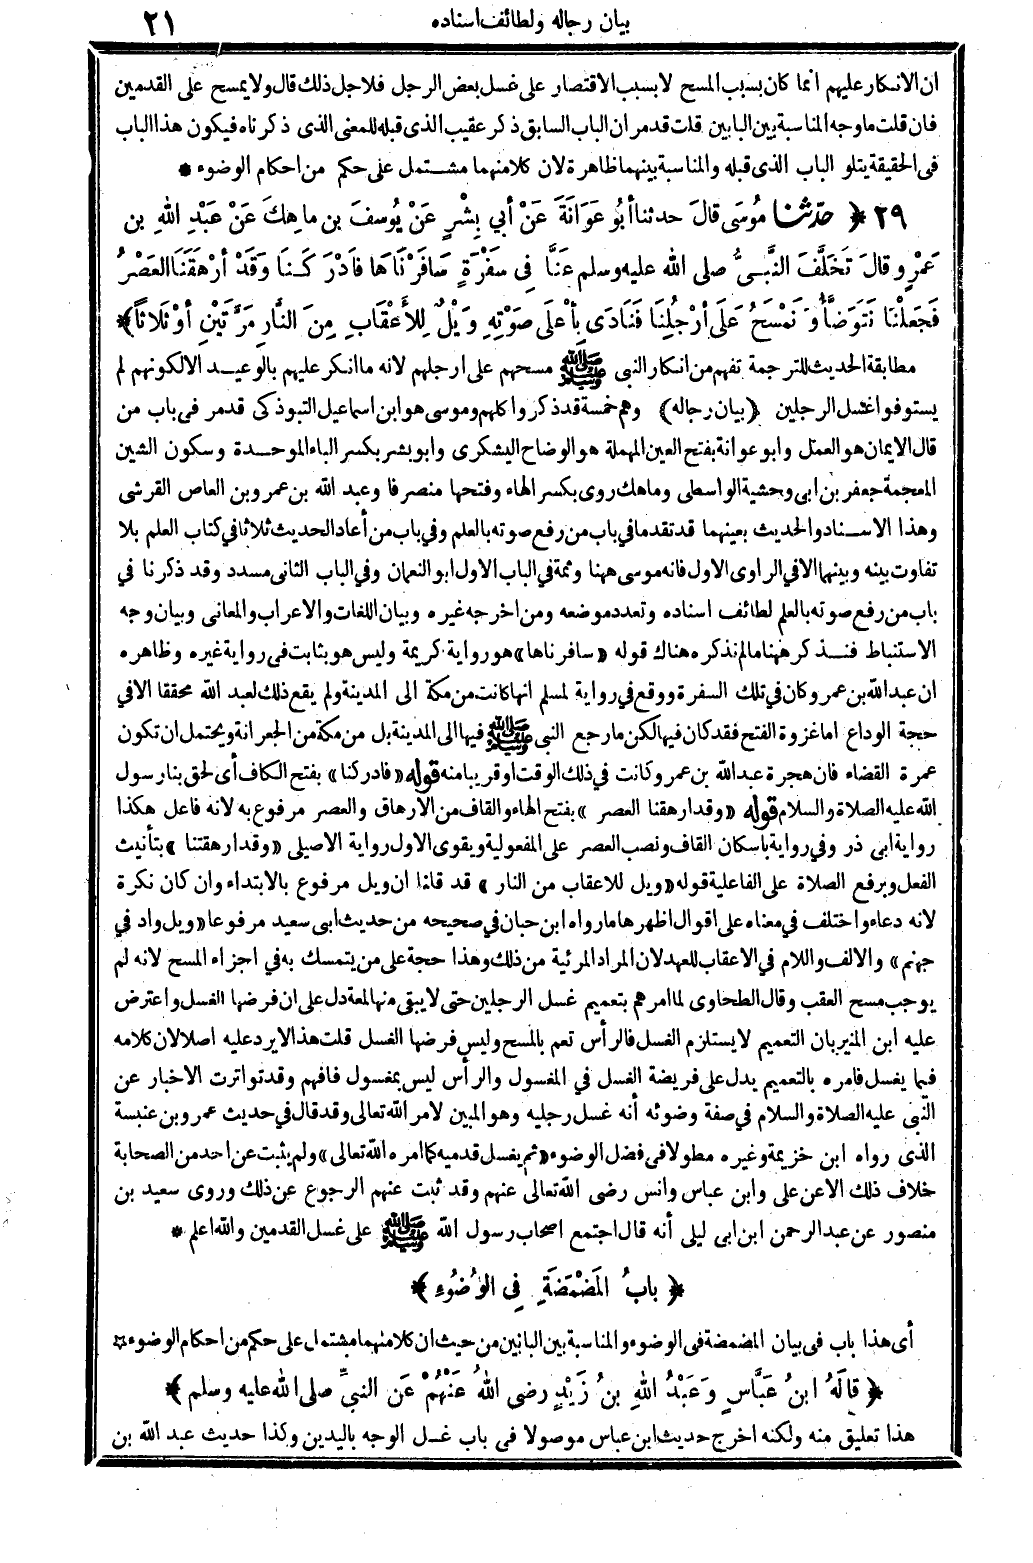 بيان رجاله ولطائف اسناده ٢١
ان الانكار عليهم انما كان بسبب المسح لا بسبب الاقتصار على غسل بعض الرجل فلاجل ذلك قال ولا يمسح على القدمين
فان قلت ما وجه المناسبة بين البابين قلت قد مر ان الباب السابق ذكر عقيب الذى قبله للمعنى الذى ذكرناه فيكون هذا الباب
فى الحقيقة يتلو الباب الذى قبله والمناسبة بينهما ظاهرة لان كلا منهما مشتمل على حكم من احكام الوضوء *
٢٩ ﴿ حَدَّثنا مُوسَى قالَ حدثنا أبُو عَوَانَةَ عَنْ أبي بِشْرٍ عَنْ يُوسفَ بن ماهِكَ عَنْ عَبْدِ اللهِ بن
عَمْرٍو قالَ تَخَلَّفَ النَّبيُّ صلى الله عليه وسلم عَنَّا فِي سَفْرَةٍ سَافَرْنَاها فَأدْرَكَنا وَقَدْ أرْهَقَنَا العَصْرُ
فَجَعَلْنا نَتَوَضَّأُ وَنَمْسَحُ عَلَى أرْجُلِنَا فَنَادَى بِأعْلَى صَوْتِهِ وَيْلٌ لِلأَعْقَابِ مِنَ النَّارِ مَرَّتَيْنِ أوْ ثَلَاثاً ﴾
مطابقة الحديث للترجمة تفهم من انكار النبى ﷺ مسحهم على ارجلهم لانه ما انكر عليهم بالوعيد الا لكونهم لم
يستوفوا غسل الرجلين ﴿بيان رجاله﴾ وهم خمسة قد ذكروا كلهم وموسى هو ابن اسماعيل التبوذكى قد مر فى باب من
قال الايمان هو العمل وابو عوانة بفتح العين المهملة هو الوضاح اليشكرى وابو بشر بكسر الباء الموحدة وسكون الشين
المعجمة جعفر بن ابى وحشية الواسطى وماهك روى بكسر الهاء وفتحها منصرفا وعبد الله بن عمرو بن العاص القرشى
وهذا الاسناد والحديث بعينهما قد تقدما في باب من رفع صوته بالعلم وفي باب من أعاد الحديث ثلاثا في كتاب العلم بلا
تفاوت بينه وبينهما الا في الراوى الاول فانه موسى ههنا وثمة في الباب الاول ابو النعمان وفي الباب الثانى مسدد وقد ذكرنا في
باب من رفع صوته بالعلم لطائف اسناده وتعدد موضعه ومن اخرجه غيره وبيان اللغات والاعراب والمعانى وبيان وجه
الاستنباط فنذكر ههنا ما لم نذكره هناك قوله «سافرناها» هو رواية كريمة وليس هو بثابت فى رواية غيره وظاهره
ان عبد الله بن عمرو كان في تلك السفرة ووقع في رواية لمسلم انها كانت من مكة الى المدينة ولم يقع ذلك لعبد الله محققا الا في
حجة الوداع اما غزوة الفتح فقد كان فيها لكن ما رجع النبى ﷺ فيها الى المدينة بل من مكة من الجعرانة ويحتمل ان تكون
عمرة القضاء فان هجرة عبد الله بن عمرو كانت في ذلك الوقت او قريبا منه قوله «فادركنا» بفتح الكاف أى لحق بنا رسول
الله عليه الصلاة والسلام قوله «وقد ارهقنا العصر» بفتح الهاء والقاف من الارهاق والعصر مرفوع به لانه فاعل هكذا
رواية ابى ذر وفي رواية باسكان القاف ونصب العصر على المفعولية ويقوى الاول رواية الاصيلى «وقد ارهقتنا» بتأنيث
الفعل وبرفع الصلاة على الفاعلية قوله «ويل للاعقاب من النار» قد قلنا ان ويل مرفوع بالابتداء وان كان نكرة
لانه دعاء واختلف في معناه على اقوال اظهرها ما رواه ابن حبان في صحيحه من حديث ابى سعيد مرفوعا «ويل واد في
جهنم» والالف واللام في الاعقاب للعهد لان المراد المرئية من ذلك وهذا حجة على من يتمسك به في اجزاء المسح لانه لم
يوجب مسح العقب وقال الطحاوى لما امرهم بتعميم غسل الرجلين حتى لا يبقى منها لمعة دل على ان فرضها الغسل واعترض
عليه ابن المنير بان التعميم لا يستلزم الغسل فالرأس تعم بالمسح وليس فرضها الغسل قلت هذا لا يرد عليه اصلا لان كلامه
فيما يغسل فامره بالتعميم يدل على فريضة الغسل في المغسول والرأس ليس بمغسول فافهم وقد تواترت الاخبار عن
النبى عليه الصلاة والسلام في صفة وضوئه أنه غسل رجليه وهو المبين لامر الله تعالى وقد قال في حديث عمرو بن عنبسة
الذى رواه ابن خزيمة وغيره مطولا فى فضل الوضوء «ثم يغسل قدميه كما امره الله تعالى» ولم يثبت عن احد من الصحابة
خلاف ذلك الا عن على وابن عباس وانس رضى الله تعالى عنهم وقد ثبت عنهم الرجوع عن ذلك وروى سعيد بن
منصور عن عبد الرحمن ابن ابى ليلى أنه قال اجتمع اصحاب رسول الله ﷺ على غسل القدمين والله اعلم *
﴿ بابُ المَضْمَضَةِ فِي الوُضُوءِ ﴾
أى هذا باب فى بيان المضمضة فى الوضوء والمناسبة بين البابين من حيث ان كلا منهما مشتمل على حكم من احكام الوضوء *
﴿ قالَهُ ابنُ عَبَّاسٍ وَعَبْدُ اللهِ بنُ زَيْدٍ رضى اللهُ عَنْهُمْ عَن النبيِّ صلى الله عليه وسلم ﴾
هذا تعليق منه ولكنه اخرج حديث ابن عباس موصولا فى باب غسل الوجه باليدين وكذا حديث عبد الله بن